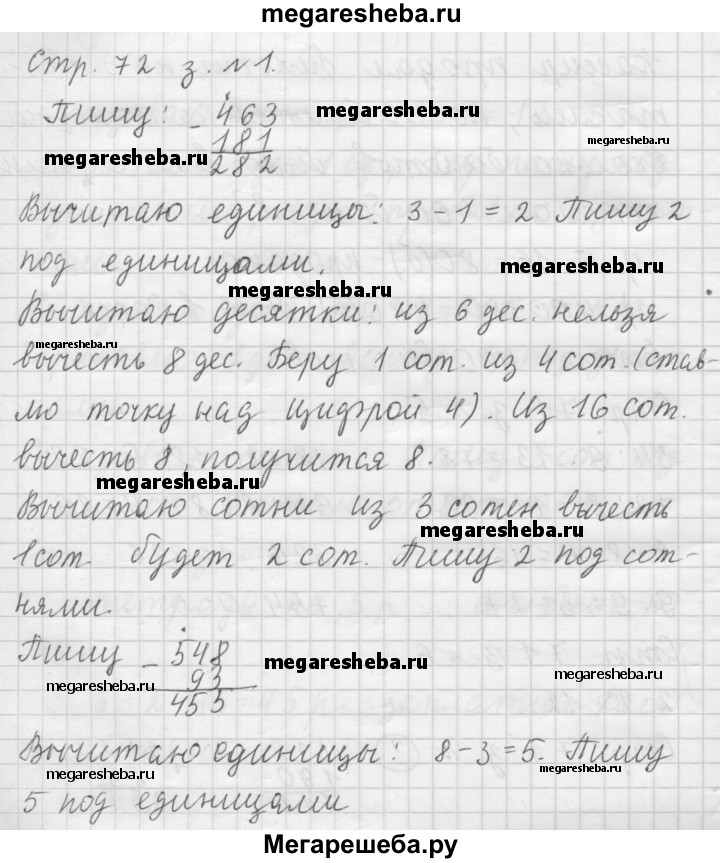 megaresheba.ru
Стр. 72 з. №1.
Пишу: - 463
megaresheba.ru
181
megaresheba.ru
megaresheba.ru
282
Вычитаю единицы: 3 - 1 = 2 Пишу 2
под единицами.
megaresheba.ru
megaresheba.ru
Вычитаю десятки: из 6 дес. нельзя
megaresheba.ru
вычесть 8 дес. Беру 1 сот. из 4 сот. (став-
лю точку над цифрой 4). Из 16 сот.
вычесть 8, получится 8.
megaresheba.ru
Вычитаю сотни из 3 сотен вычесть
megaresheba.ru
1 сот. будет 2 сот. Пишу 2 под сот-
нями.
Пишу - 548
megaresheba.ru
megaresheba.ru
93
megaresheba.ru
455
Вычитаю единицы: 8 - 3 = 5. Пишу
megaresheba.ru
megaresheba.ru
5 под единицами
Мегарешеба.ру